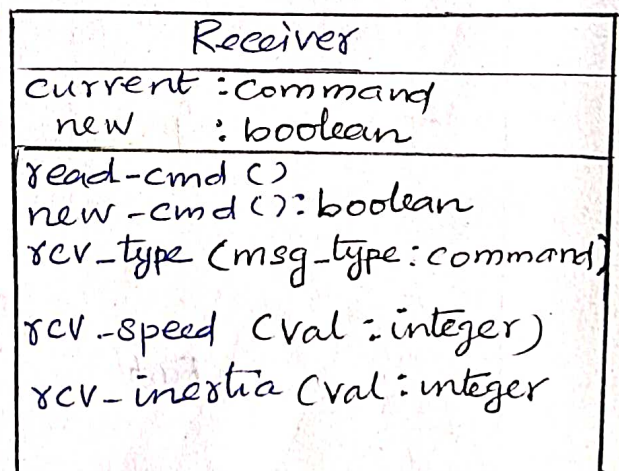 Receiver
current : command
new : boolean
read-cmd ()
new-cmd (): boolean
rcv_type (msg_type: command)
rcv-speed (val : integer)
rcv-inertia (val : integer